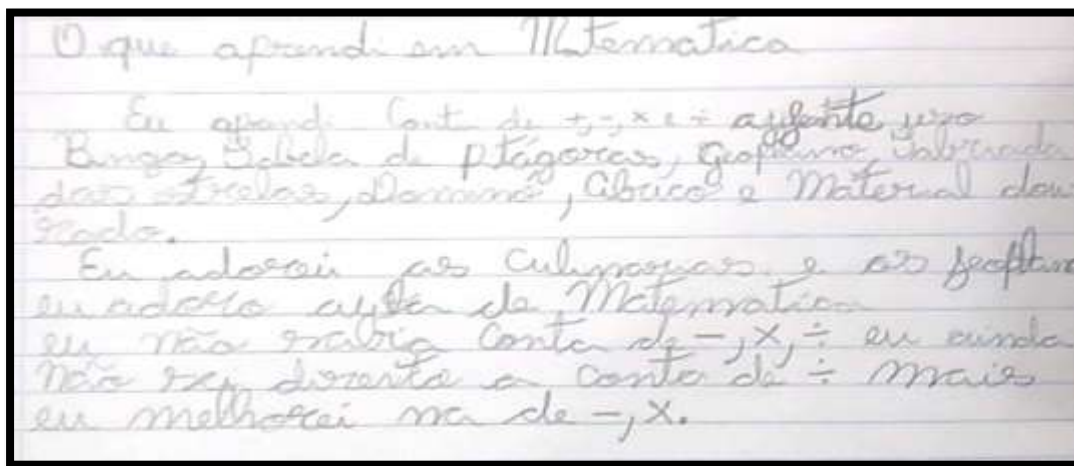 O que aprendi em Mtematica
Eu aprendi Cont de +,-,× e ÷ agente uso
Bingo, Tabela de Ptágoras, Geoplano,
das strelas, Dominó, Abuco e Material dou
rado.
Eu adorei as Culinarias e os geoplan
eu adoro aula de Matematica
eu não sabia Conta de -,×,÷ eu ainda
não sei direito a conta de ÷ mais
eu melhorei na de -,×.